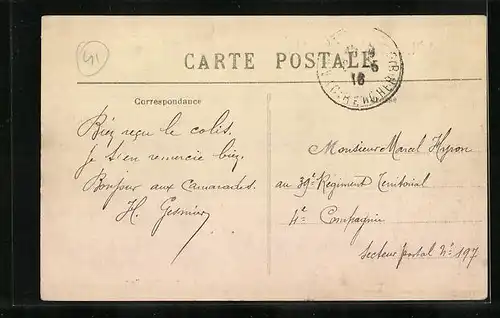 41
CARTE POSTALE
16
LOIR-&-CHER
Correspondance
Bien reçu le colis.
Je t'en remercie bien.
Bonjour aux camarades.
H. Gesmier
Monsieur Marcel Hyron
au 39e Régiment Territorial
4e Compagnie
Secteur postal No 197